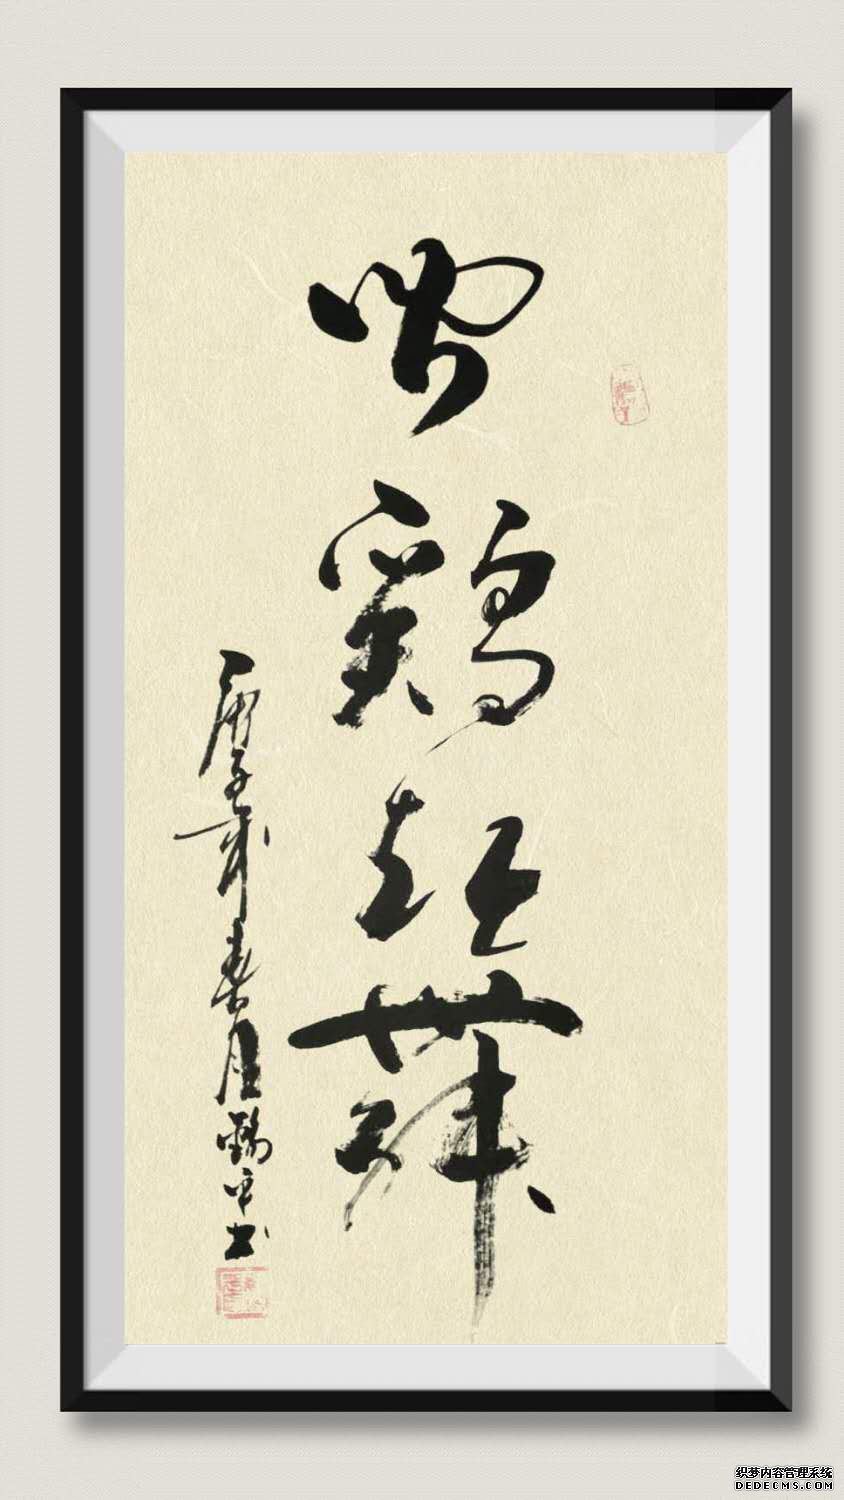 闻鸡起舞
庚子年春月
平书
织梦内容管理系统
DEDECMS.COM